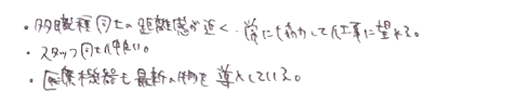 ・多職種同士の距離感が近く、常に協力して仕事に望める。
・スタッフ同士仲良い。
・医療機器も最新の物を導入している。